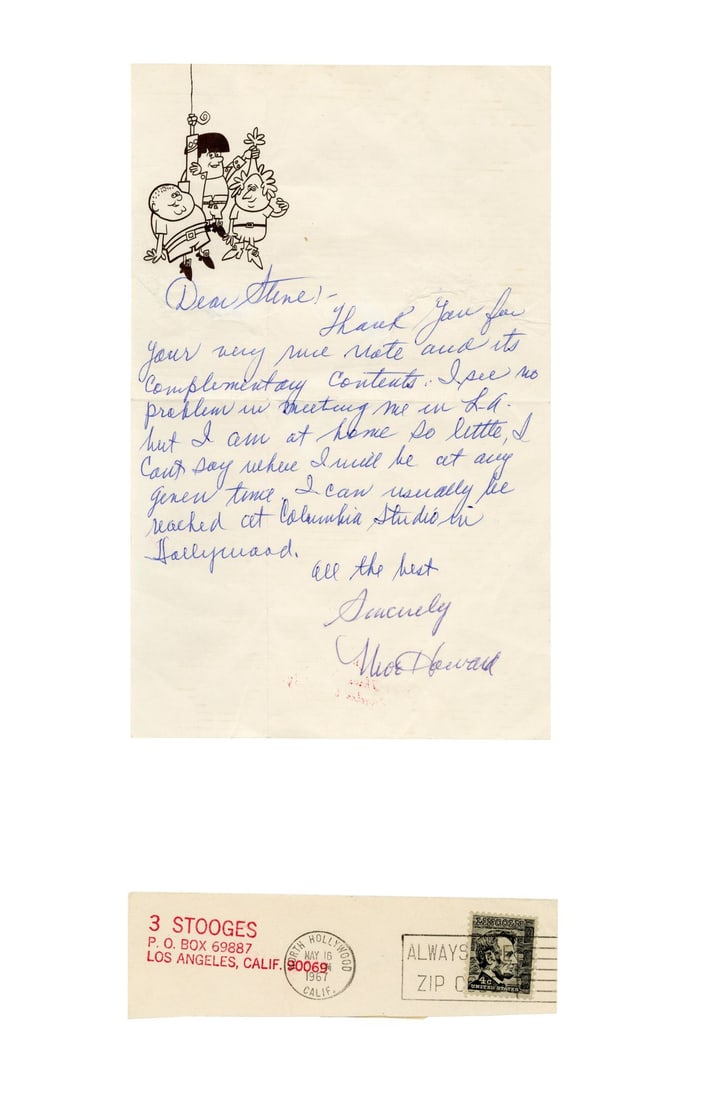 Dear Steve:-
Thank You for
your very nice note and its
complimentary contents. I see no
problem in meeting me in L.A.
but I am at home so little, I
can't say where I will be at any
given time. I can usually be
reached at Columbia Studio in
Hollywood.
All the best
Sincerely
Moe Howard
3 STOOGES
P. O. BOX 69887
LOS ANGELES, CALIF. 90069
NORTH HOLLYWOOD
MAY 16
1967
CALIF.
ALWAYS
ZIP
4c
UNITED STATES